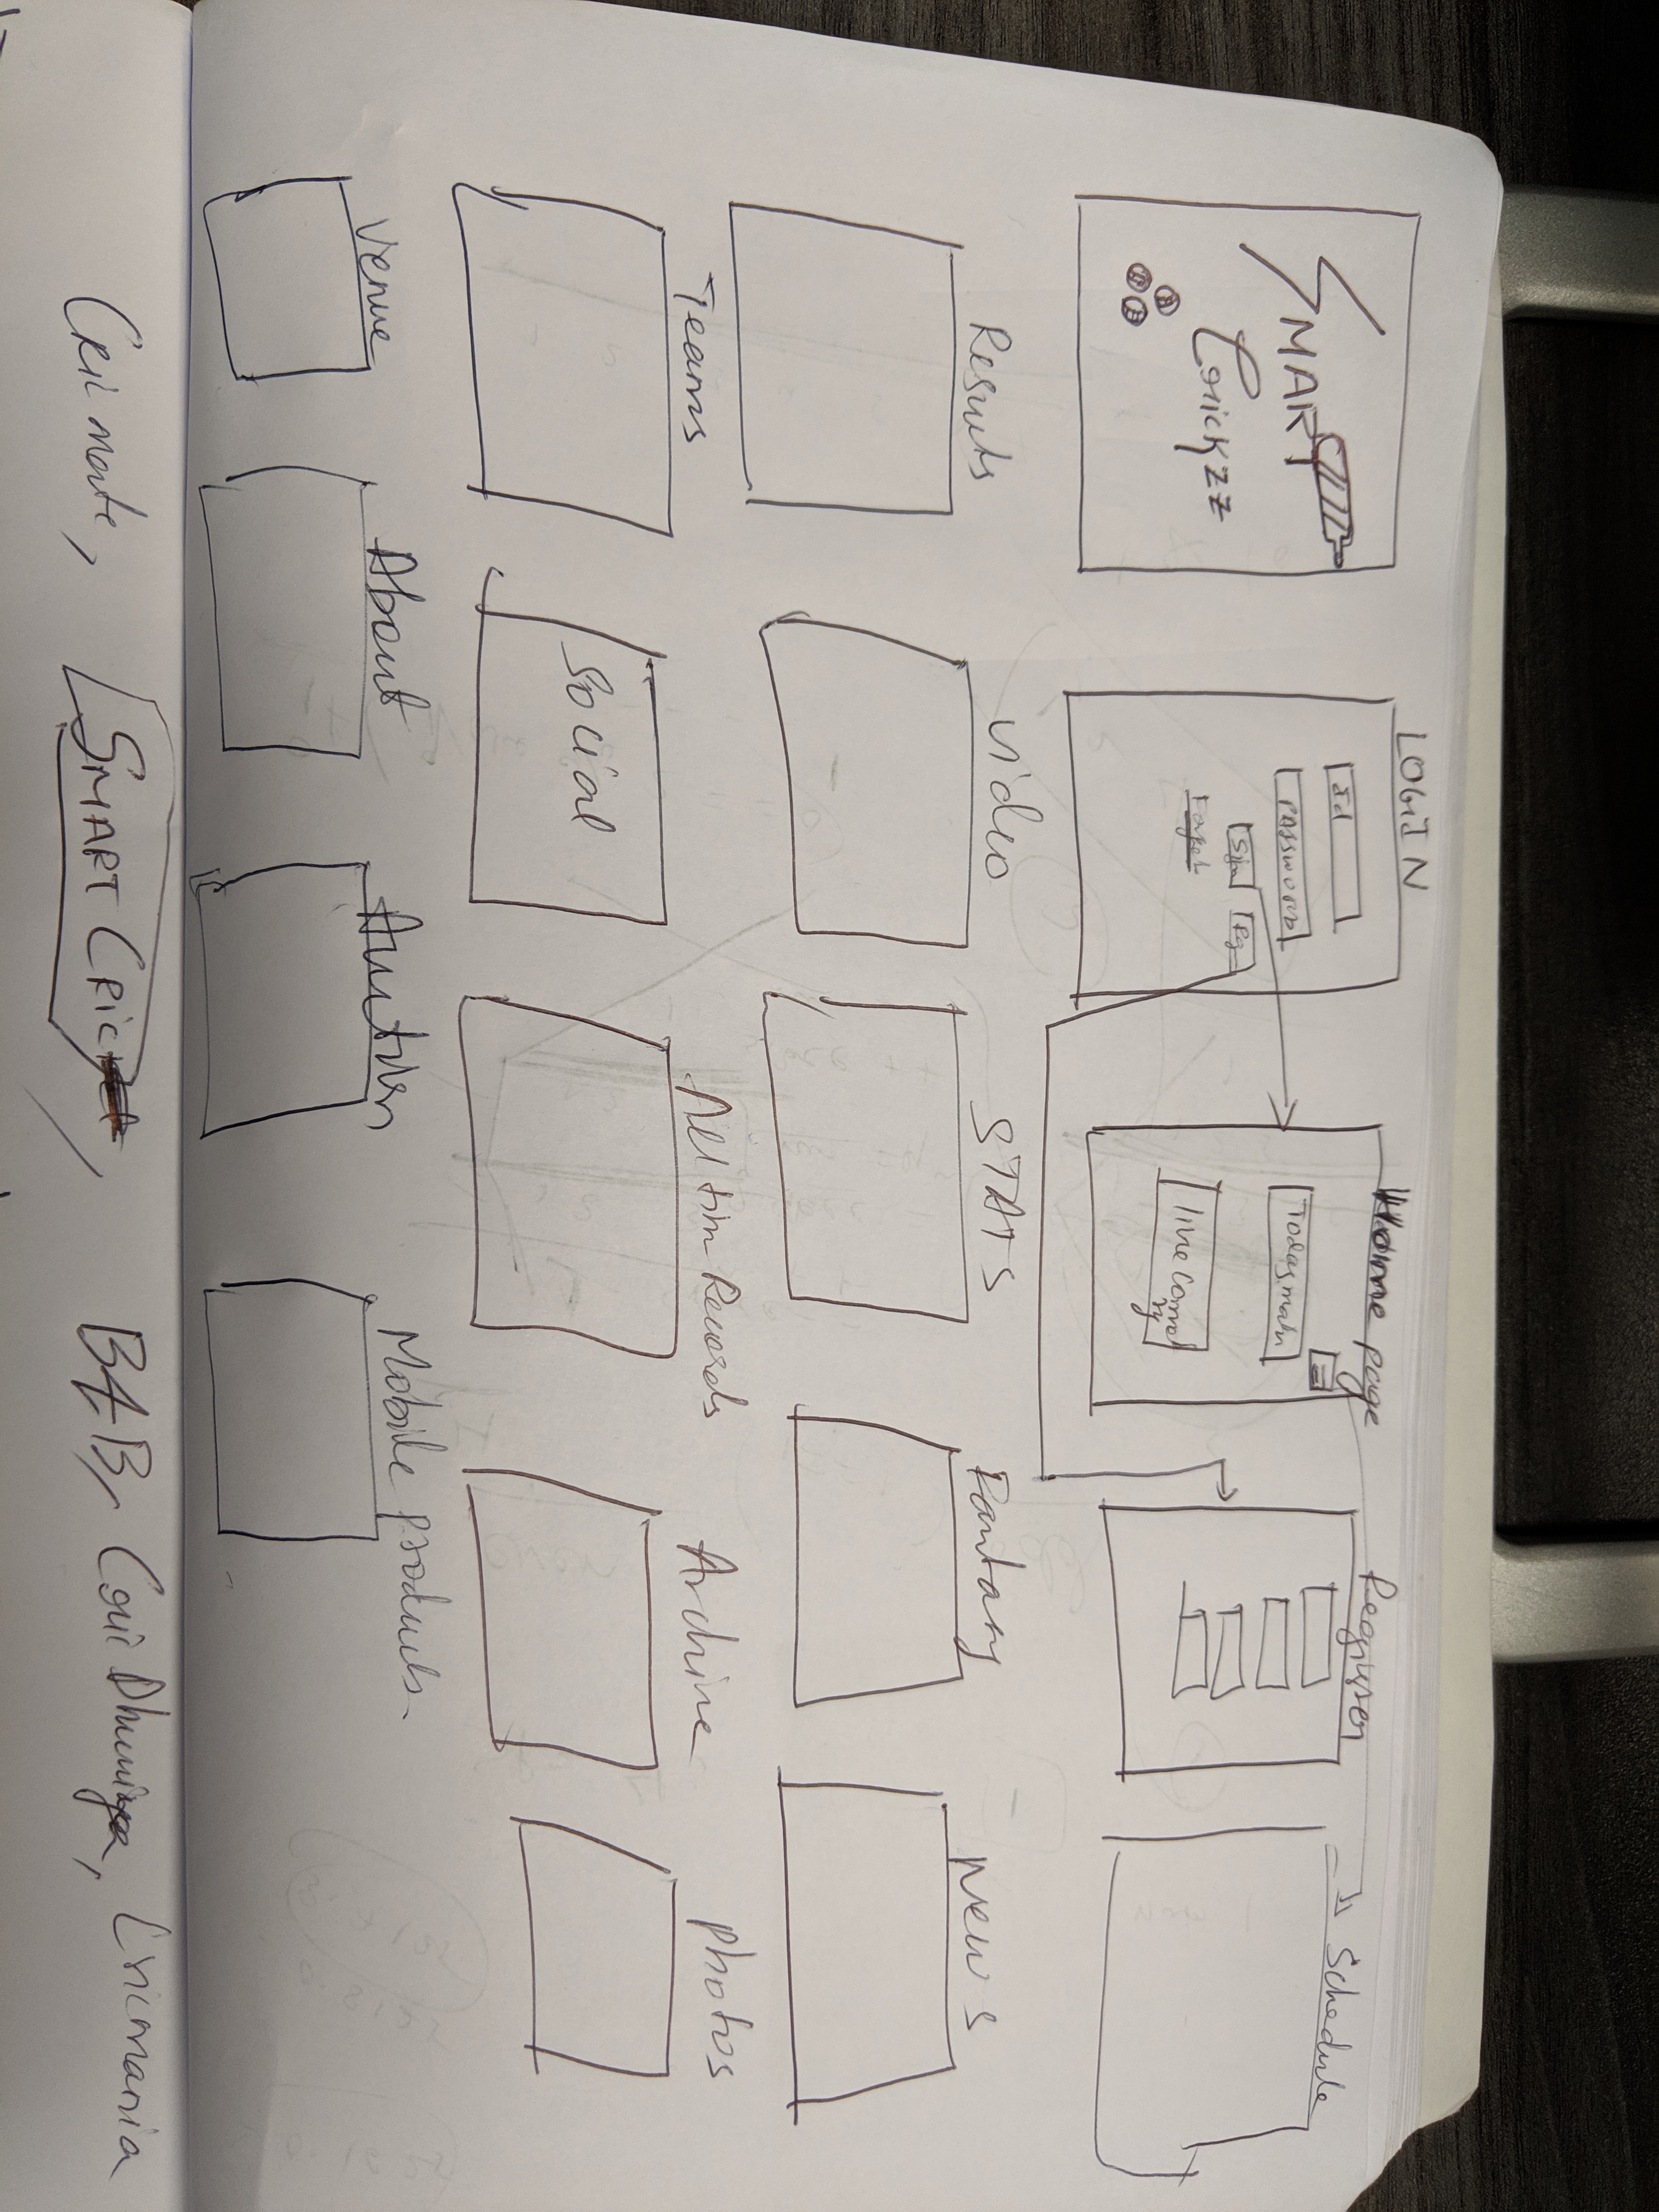 SMART
Crickzz
LOGIN
Id
PASSWORD
Sign
Reg
Forget
Home page
Todays match
Register
Schedule
Results
Video
STATS
Fantasy
News
Teams
Social
All tim Records
Archive
Photos
Venue
About
Auction
Mobile products
Cric mate, SMART CRIC, B4B, Cric Dhuniya, Cricmania